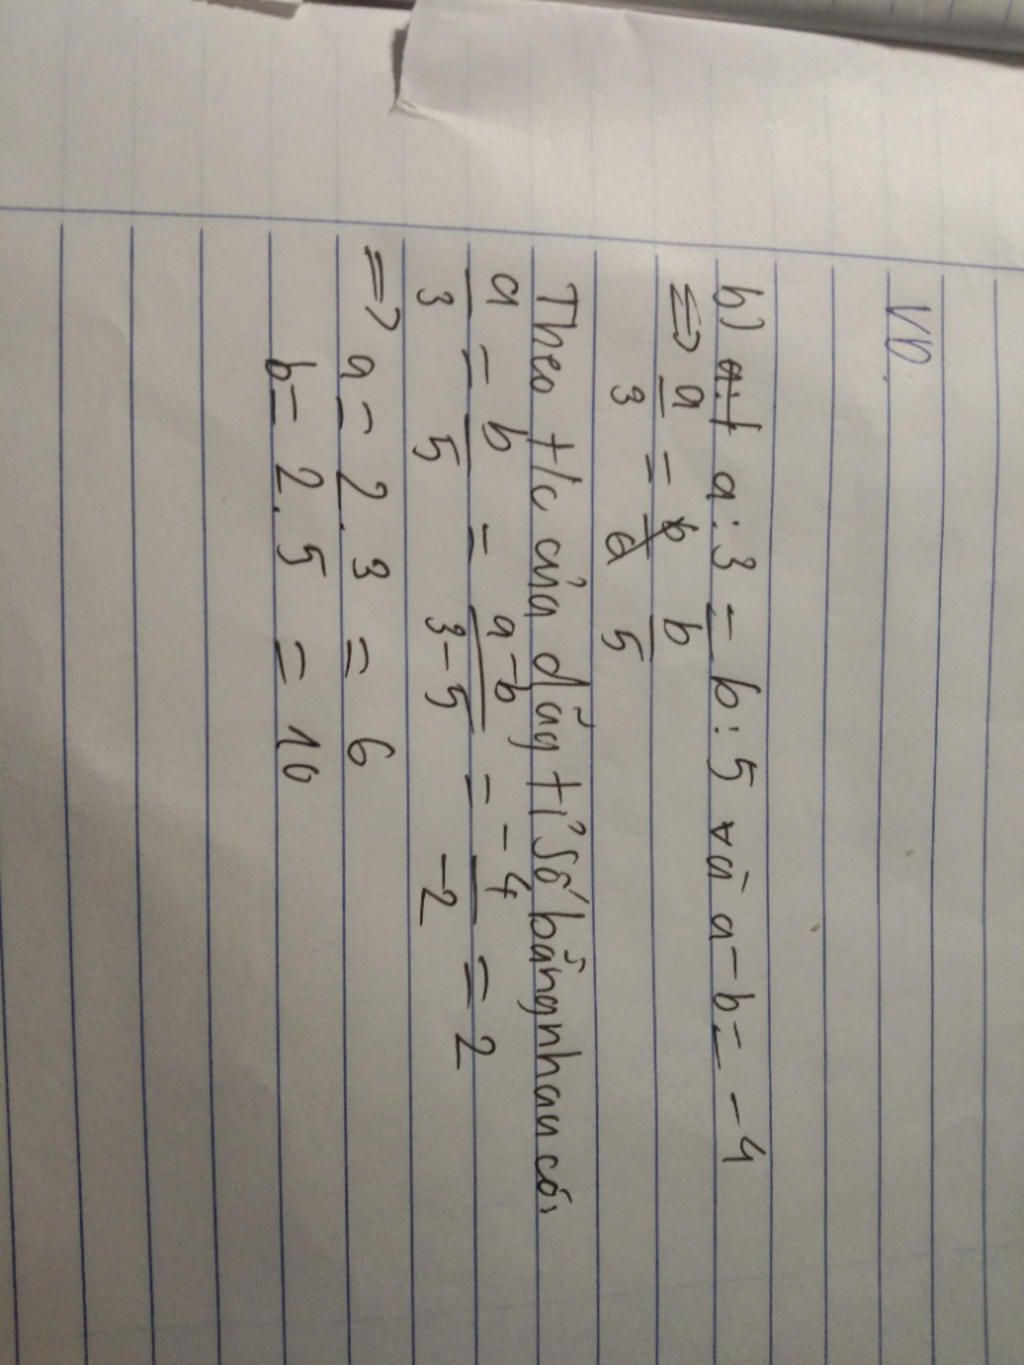 VD.
b) a : 3 = b : 5 và a - b = -4
=> a/3 = b/5
Theo t/c của dãy tỉ số bằng nhau có,
a/3 = b/5 = a-b/3-5 = -4/-2 = 2
=> a = 2.3 = 6
b = 2.5 = 10